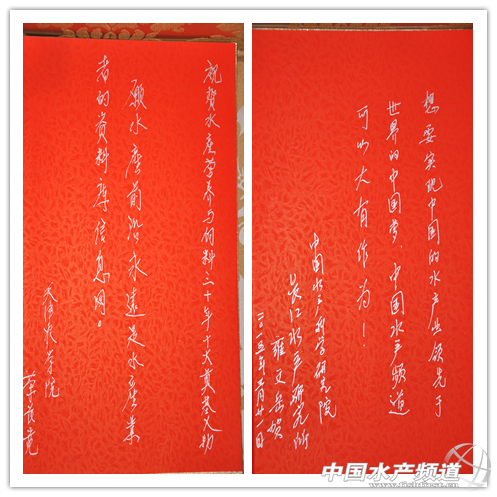 祝贺水产营养与饲料三十年十大奠基文物
愿水产前沿永远是水产业
者的资料库信息网。
天津农学院
想要实现中国的水产业领先于
世界的中国梦，中国水产频道
可以大有作为！
中国水产科学研究院
长江水产研究所
二〇一五年一月廿一日
中国水产频道